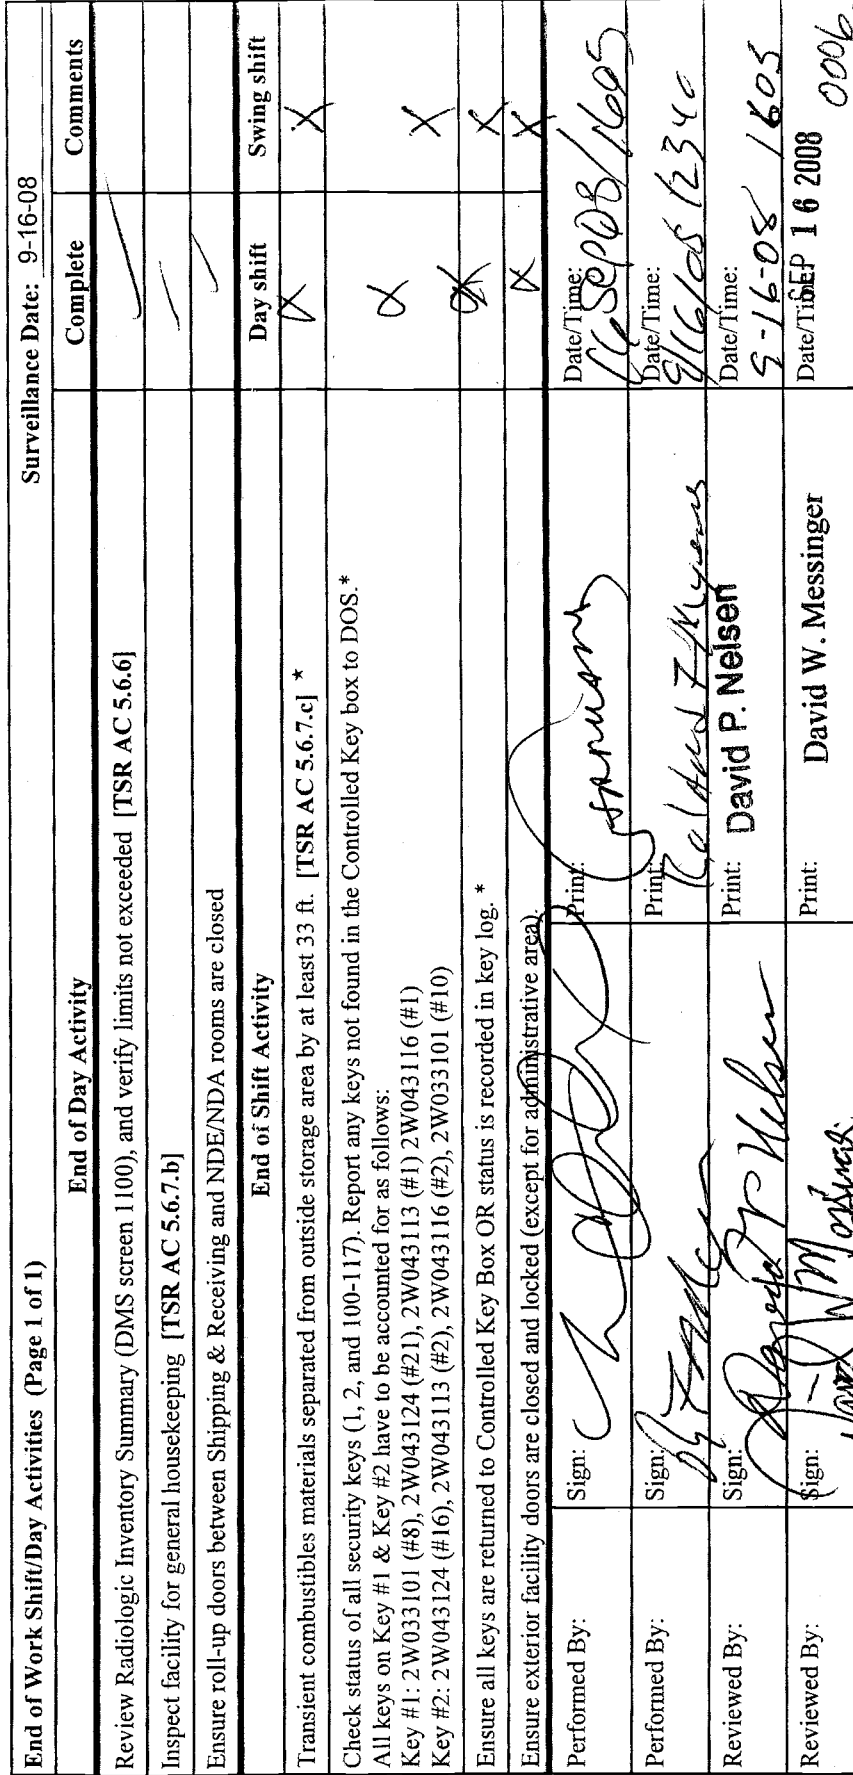 End of Work Shift/Day Activities (Page 1 of 1) Surveillance Date: 9-16-08
End of Day Activity Complete Comments
Review Radiologic Inventory Summary (DMS screen 1100), and verify limits not exceeded [TSR AC 5.6.6]
Inspect facility for general housekeeping [TSR AC 5.6.7.b]
Ensure roll-up doors between Shipping & Receiving and NDE/NDA rooms are closed
End of Shift Activity Day shift Swing shift
Transient combustibles materials separated from outside storage area by at least 33 ft. [TSR AC 5.6.7.c] * X X
Check status of all security keys (1, 2, and 100-117). Report any keys not found in the Controlled Key box to DOS.*
All keys on Key #1 & Key #2 have to be accounted for as follows: X X
Key #1: 2W033101 (#8), 2W043124 (#21), 2W043113 (#1) 2W043116 (#1)
Key #2: 2W043124 (#16), 2W043113 (#2), 2W043116 (#2), 2W033101 (#10)
Ensure all keys are returned to Controlled Key Box OR status is recorded in key log. * X X
Ensure exterior facility doors are closed and locked (except for administrative area). X X
Performed By: Sign: Print: Date/Time: 16Sep08/1605
Performed By: Sign: Print: Date/Time: 9/16/08 12340
Reviewed By: Sign: David P Nelsen Print: David P. Nelsen Date/Time: 9-16-08 1605
Reviewed By: Sign: David W Messinger Print: David W. Messinger Date/Time: SEP 16 2008 0006